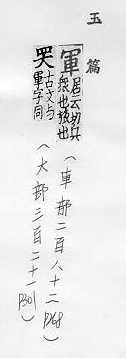 玉篇
「軍 居云切兵
眾也旅也
(車部二百八十二 P268)
古文与
軍字同
(大部三百二十一 P301)